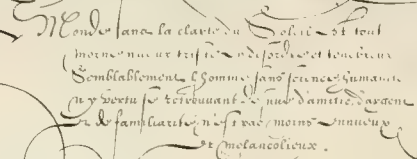 Monde sans la clarte du Soleil est tout
morne nueux triste en disordre et tenebreux
Semblablement l'homme sans science humanite
n'y vertu se retrouvant de nue d'amitie, d'argent
et de familiarite n'est pas moins ennueux
et melancolieux.